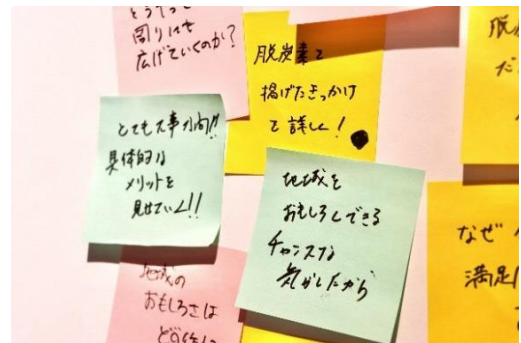 どうやって
周りにも
広げていくのか?
脱炭素を
掲げたきっかけ
を詳しく!
とても大事な問!!
具体的な
メリットを
見せていく!!
地域を
おもしろくできる
チャンスな
気がしたから
地域の
おもしろさは
どの
なぜ
満足
脱
だ